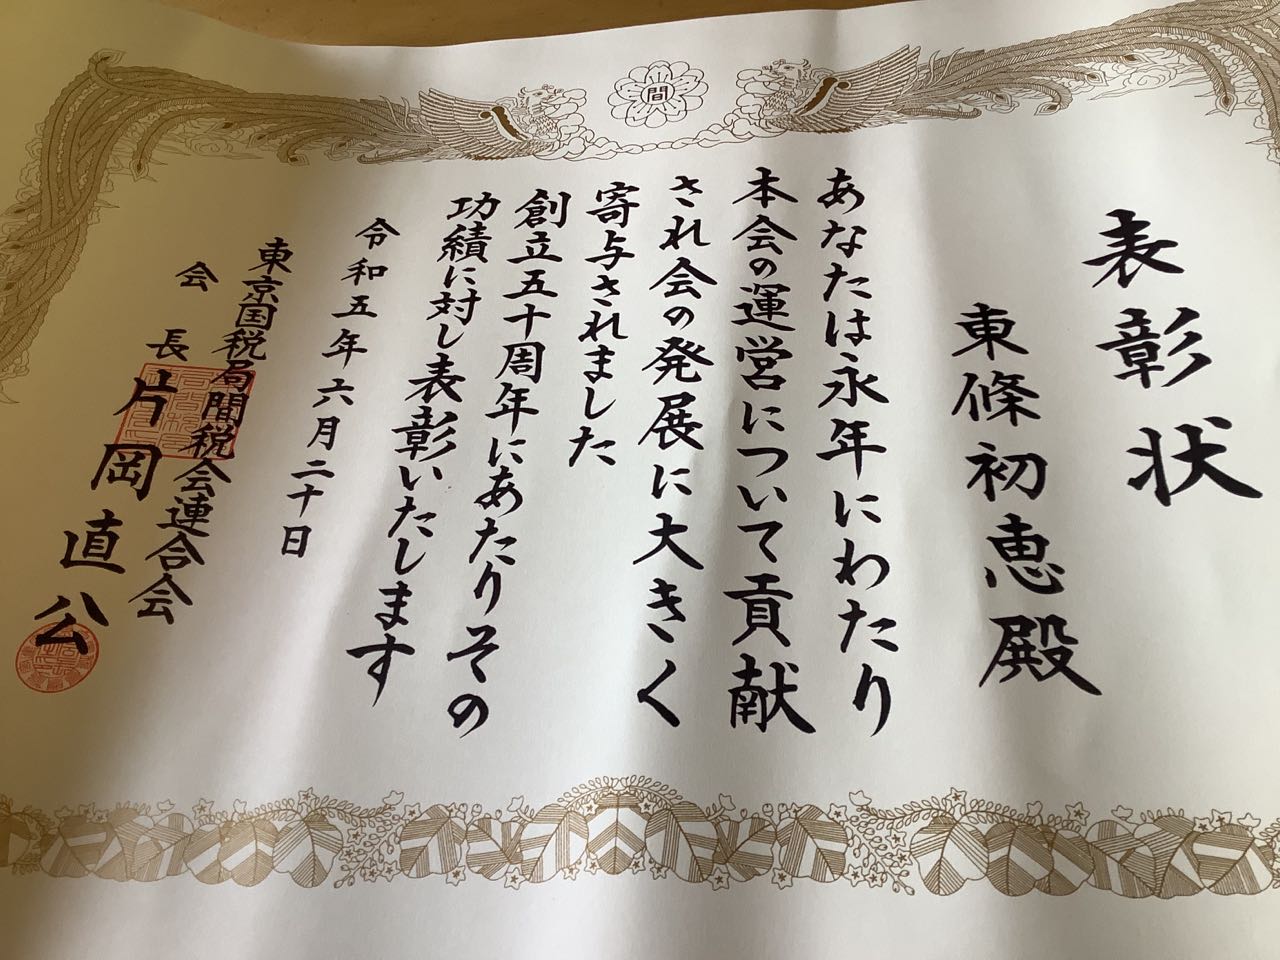 間
表彰状
東條初恵殿
あなたは永年にわたり
本会の運営について貢献
され会の発展に大きく
寄与されました
創立五十周年にあたりその
功績に対し表彰いたします
令和五年六月二十日
東京国税局間税会連合会
会長 片岡直公